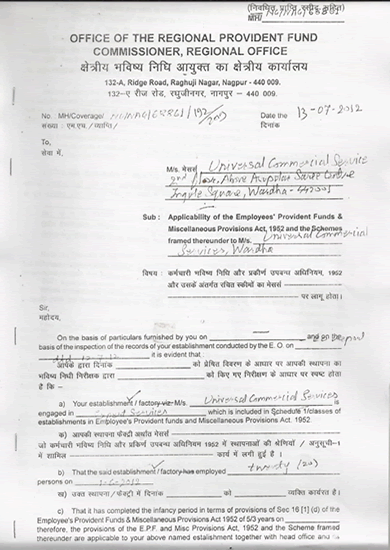 (नियोक्ता प्राप्ति रसीद सहित)
OFFICE OF THE REGIONAL PROVIDENT FUND
COMMISSIONER, REGIONAL OFFICE
क्षेत्रीय भविष्य निधि आयुक्त का क्षेत्रीय कार्यालय
132-A, Ridge Road, Raghuji Nagar, Nagpur - 440 009.
132-ए रीज रोड, रघुजीनगर, नागपुर - 440 009.
No. MH/Coverage/
Date the 13-07-2012
संख्या : एम.एच./व्याप्ति/
दिनांक
To,
सेवा में,
M/s. मेसर्स Universal Commercial Service
2nd Floor, Above Anupulas Saree Centre
Ingole Square, Wardha - 442001
Sub : Applicability of the Employees' Provident Funds &
Miscellaneous Provisions Act, 1952 and the Schemes
framed thereunder to M/s. Universal Commercial
Services, Wardha
विषय : कर्मचारी भविष्य निधि और प्रकीर्ण उपबन्ध अधिनियम, 1952
और उसके अंतर्गत रचित स्कीमों का मेसर्स
पर लागू होना।
Sir,
महोदय,
On the basis of particulars furnished by you on and on the
basis of the inspection of the records of your establishment conducted by the E.O. on
12.7.12 it is evident that :
आपके द्वारा दिनांक को प्रेषित विवरण के आधार पर आपकी स्थापना का
भविष्य निधी निरीक्षक द्वारा को किए गए निरीक्षण के आधार पर स्पष्ट होता
है कि –
a) Your establishment / factory viz M/s. Universal Commercial Services
engaged in Expert Services which is included in Schedule 1/classes of
establishments in Employee's Provident funds and Miscellaneous Provisions Act. 1952.
क) आपकी स्थापना फेक्ट्री अर्थात मेसर्स
जो कर्मचारी भविष्य निधि और प्रकीर्ण उपबन्ध अधिनियम 1952 में स्थापनाओं की श्रेणीयां / अनुसूची-1
में शामिल कार्य में लगी हुई है ।
b) That the said establishment / factory has employed twenty (20)
persons on
ख) उक्त स्थापना/फेक्ट्री में दिनांक को व्यक्ति कार्यरत है।
c) That it has completed the infancy period in terms of provisions of Sec 16 [1] (d) of the
Employee's Provident Funds & Miscellaneous Provisions Act 1952 of 5/3 years on
therefore, the provisions of the E.P.F. and Misc Provisions Act, and the Scheme framed
thereunder are applicable to your above named establishment togethers with head office and